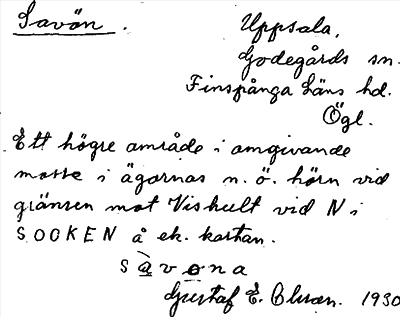 Savön.
Uppsala,
Godegårds sn.
Finspånga läns hd.
Ögl.
Ett högre område i omgivande
mosse i ägornas n. ö. hörn vid
gränsen mot Viskult vid N i
SOCKEN å ek. kartan.
sàvona
Gustaf E. Olsson. 1930